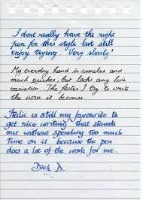 I don't really have the right
pen for this style but still
enjoy trying. Very slowly!
My everyday hand is smaller and
much quicker, but lacks any line
variation. The faster I try to write
the worse it becomes.
Italic is still my favourite to
get nice writing that stands
out without spending too much
time on it because the pen
does a lot of the work for me.
Dick D.